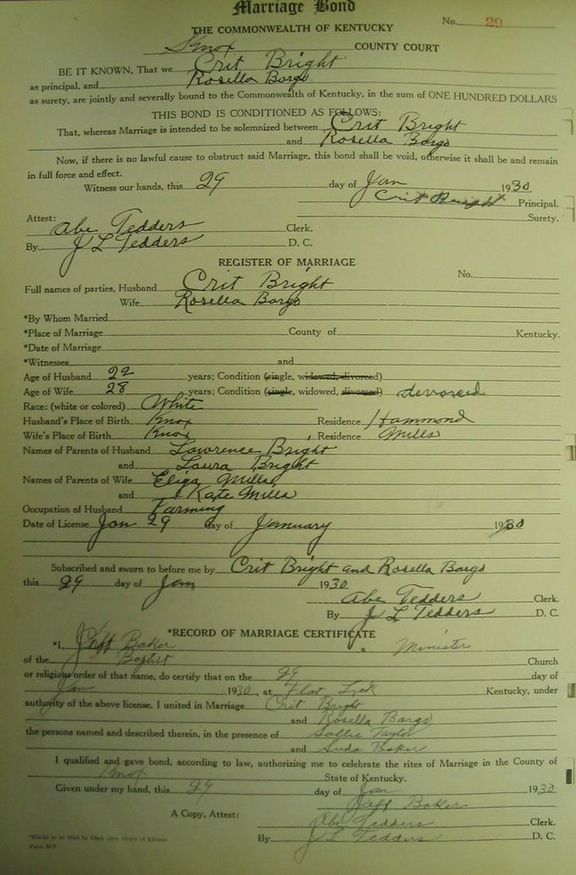 Marriage Bond
No. 29
THE COMMONWEALTH OF KENTUCKY
Knox COUNTY COURT
BE IT KNOWN, That we Crit Bright
as principal, and Rosella Bargo
as surety, are jointly and severally bound to the Commonwealth of Kentucky, in the sum of ONE HUNDRED DOLLARS
THIS BOND IS CONDITIONED AS FOLLOWS:
That, whereas Marriage is intended to be solemnized between Crit Bright
and Rosella Bargo
Now, if there is no lawful cause to obstruct said Marriage, this bond shall be void, otherwise it shall be and remain
in full force and effect.
Witness our hands, this 29 day of Jan 1930.
Crit Bright Principal.
Surety.
Attest:
Abe Tedders Clerk.
By J L Tedders D. C.
REGISTER OF MARRIAGE
No.
Full names of parties, Husband Crit Bright
Wife Rosella Bargo
*By Whom Married
*Place of Marriage County of Kentucky.
*Date of Marriage
*Witnesses and
Age of Husband 22 years; Condition (single, widowed, divorced)
Age of Wife 28 years; Condition (single, widowed, divorced) divorced
Race: (white or colored) White
Husband's Place of Birth Knox Residence Hammond
Wife's Place of Birth Knox, Residence Mills
Names of Parents of Husband Lawrence Bright
and Laura Bright
Names of Parents of Wife Eliga Mills
and Kate Mills
Occupation of Husband Farming
Date of License Jan 29 day of January 1930
Subscribed and sworn to before me by Crit Bright and Rosella Bargo
this 29 day of Jan 1930
Abe Tedders Clerk.
By J L Tedders D. C.
*RECORD OF MARRIAGE CERTIFICATE
*I, Jeff Baker a Minister
of the Baptist Church
or religious order of that name, do certify that on the 29 day of
Jan 1930, at Flat Lick Kentucky, under
authority of the above license, I united in Marriage Crit Bright
and Rosella Bargo
the persons named and described therein, in the presence of Sallie Taylor
and Suda Baker
I qualified and gave bond, according to law, authorizing me to celebrate the rites of Marriage in the County of
Knox State of Kentucky.
Given under my hand, this 29 day of Jan 1930
Jeff Baker
A Copy, Attest: Abe Tedders Clerk.
By J L Tedders D. C.